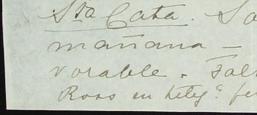 Sta Cata. Sa
mañana —
vorable. Fal
Ross en teleg.ª fe